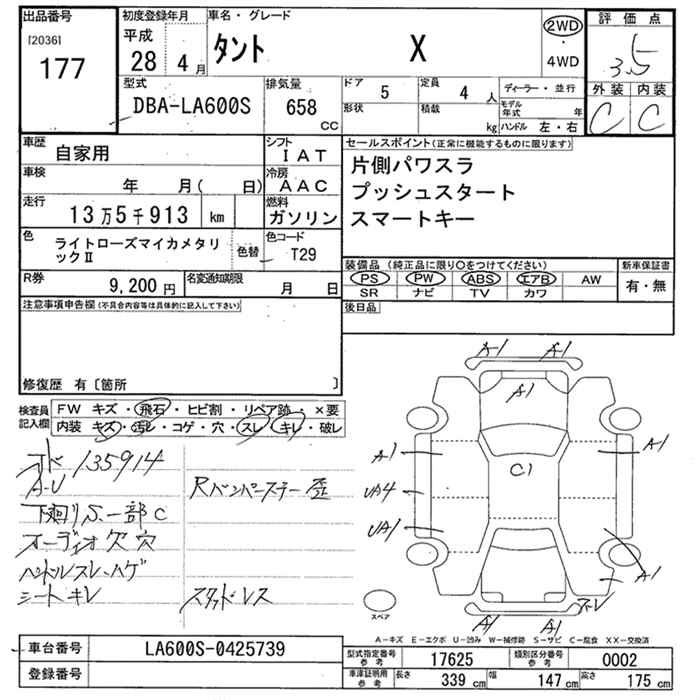 出品番号
[2036]
177
初度登録年月
平成
28 4月
車名・グレード
タント X
2WD
・
4WD
評価点
3.5
外装 内装
C C
型式
DBA-LA600S
排気量
658 CC
ドア 5
定員 4 人
形状
積載 kg
ディーラー・並行
モデル年式 年
ハンドル 左・右
車歴 自家用
シフト IAT
車検 年 月( 日)
冷房 AAC
走行 13万5千913 km
燃料 ガソリン
色 ライトローズマイカメタリックⅡ
色替
色コード T29
R券 9,200円
名変通知期限 月 日
セールスポイント(正常に機能するものに限ります)
片側パワスラ
プッシュスタート
スマートキー
装備品(純正品に限り○をつけてください)
PS PW ABS エアB AW
SR ナビ TV カワ
新車保証書
有・無
後日品
注意事項申告欄(不具合内容等は具体的に記入して下さい)
修復歴 有〔箇所 〕
検査員記入欄
FW キズ・飛石・ヒビ割・リペア跡・×要
内装 キズ・汚レ・コゲ・穴・スレ・キレ・破レ
135914
A-U
下廻りS、一部C
オーディオ欠穴
ハンドルスレ、ハゲ
シートキレ
Rバンパーステー歪
スタッドレス
A1 A1
A1
A1 A1
C1
UA4
UA1
A1
A1 A1
スペア
A-キズ E-エクボ U-凹み W-補修跡 S-サビ C-腐食 XX-交換済
車台番号 LA600S-0425739
登録番号
型式指定番号参考 17625
類別区分番号参考 0002
車庫証明用参考 長さ 339 cm 幅 147 cm 高さ 175 cm